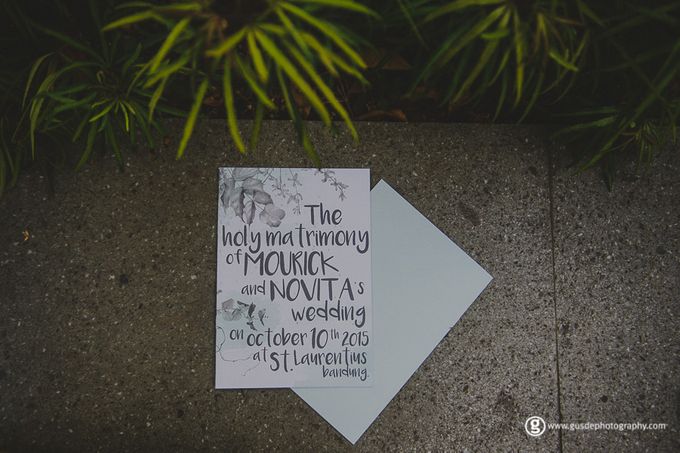 The
holy matrimony
of MOURICK
and NOVITA's
wedding
on october 10th 2015
at St. Laurentius
bandung.
g www.gusdephotography.com